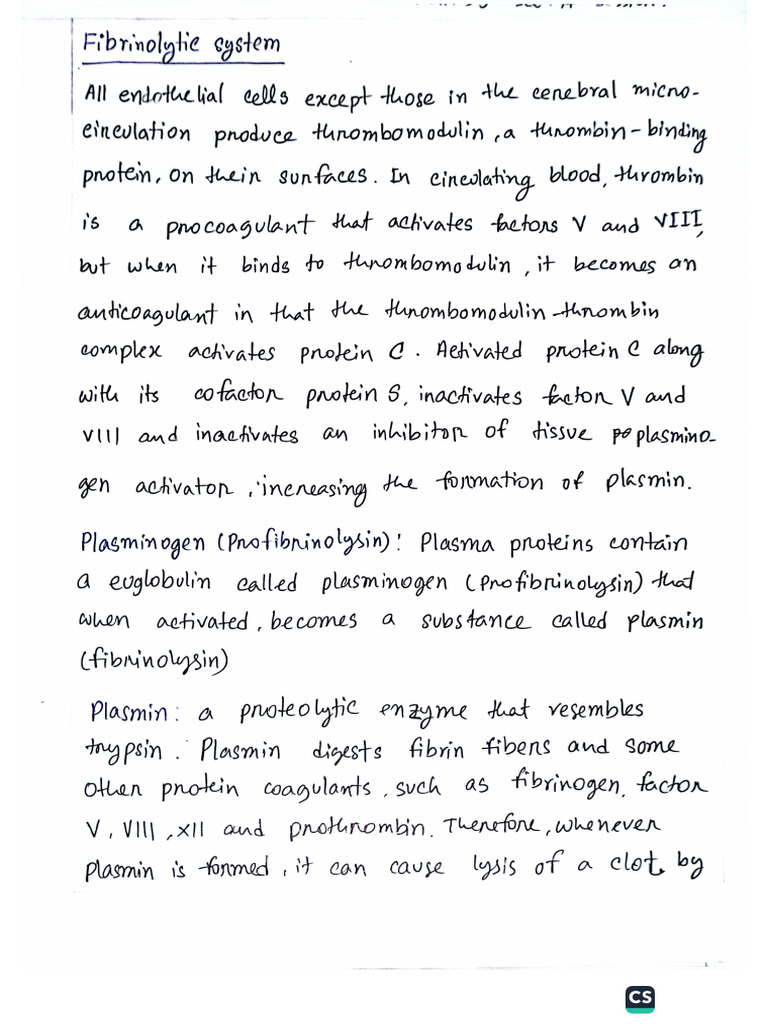 Fibrinolytic system
All endothelial cells except those in the cerebral micro-
circulation produce thrombomodulin, a thrombin-binding
protein, on their surfaces. In circulating blood, thrombin
is a procoagulant that activates factors V and VIII,
but when it binds to thrombomodulin, it becomes an
anticoagulant in that the thrombomodulin-thrombin
complex activates protein C. Activated protein C along
with its cofactor protein S, inactivates factor V and
VIII and inactivates an inhibitor of tissue plasmino-
gen activator, increasing the formation of plasmin.
Plasminogen (Profibrinolysin): Plasma proteins contain
a euglobulin called plasminogen (Profibrinolysin) that
when activated, becomes a substance called plasmin
(fibrinolysin)
Plasmin: a proteolytic enzyme that resembles
trypsin. Plasmin digests fibrin fibers and some
other protein coagulants, such as fibrinogen, factor
V, VIII, XII and prothrombin. Therefore, whenever
plasmin is formed, it can cause lysis of a clot by
CS